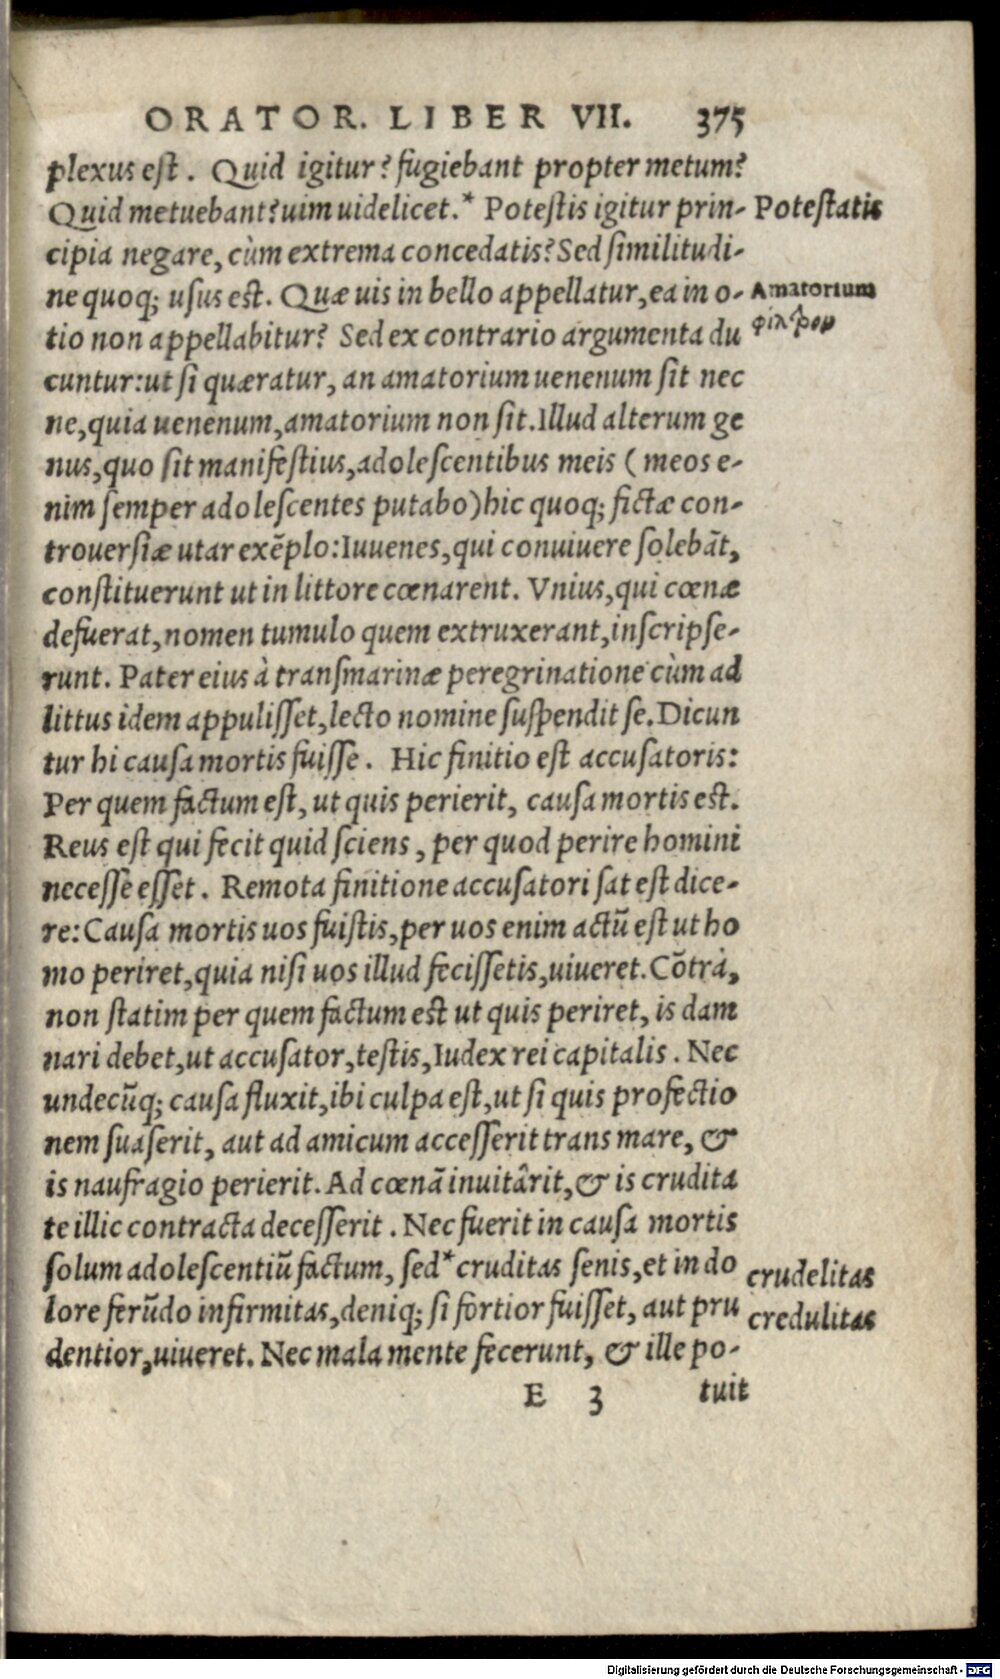 ORATOR. LIBER VII. 375
plexus est. Quid igitur? fugiebant propter metum?
Quid metuebant? uim uidelicet.* Potestis igitur prin- Potestatis
cipia negare, cùm extrema concedatis? Sed similitudi-
ne quoq; usus est. Quæ uis in bello appellatur, ea in o- Amatorium
tio non appellabitur? Sed ex contrario argumenta du φίλτρον
cuntur: ut si quæratur, an amatorium uenenum sit nec
ne, quia uenenum, amatorium non sit. Illud alterum ge
nus, quo sit manifestius, adolescentibus meis (meos e-
nim semper adolescentes putabo) hic quoq; fictæ con-
trouersiæ utar exẽplo: Iuuenes, qui conuiuere solebãt,
constituerunt ut in littore cœnarent. Vnius, qui cœnæ
defuerat, nomen tumulo quem extruxerant, inscripse-
runt. Pater eius à transmarinæ peregrinatione cùm ad
littus idem appulisset, lecto nomine suspendit se. Dicun
tur hi causa mortis fuisse. Hic finitio est accusatoris:
Per quem factum est, ut quis perierit, causa mortis est.
Reus est qui fecit quid sciens, per quod perire homini
necesse esset. Remota finitione accusatori sat est dice-
re: Causa mortis uos fuistis, per uos enim actũ est ut ho
mo periret, quia nisi uos illud fecissetis, uiueret. Cõtrà,
non statim per quem factum est ut quis periret, is dam
nari debet, ut accusator, testis, Iudex rei capitalis. Nec
undecũq; causa fluxit, ibi culpa est, ut si quis profectio
nem suaserit, aut ad amicum accesserit trans mare, &
is naufragio perierit. Ad cœnã inuitârit, & is crudita
te illic contracta decesserit. Nec fuerit in causa mortis
solum adolescentiũ factum, sed* cruditas senis, et in do crudelitas
lore ferũdo infirmitas, deniq; si fortior fuisset, aut pru credulitas
dentior, uiueret. Nec mala mente fecerunt, & ille po-
E 3 tuit
Digitalisierung gefördert durch die Deutsche Forschungsgemeinschaft - DFG